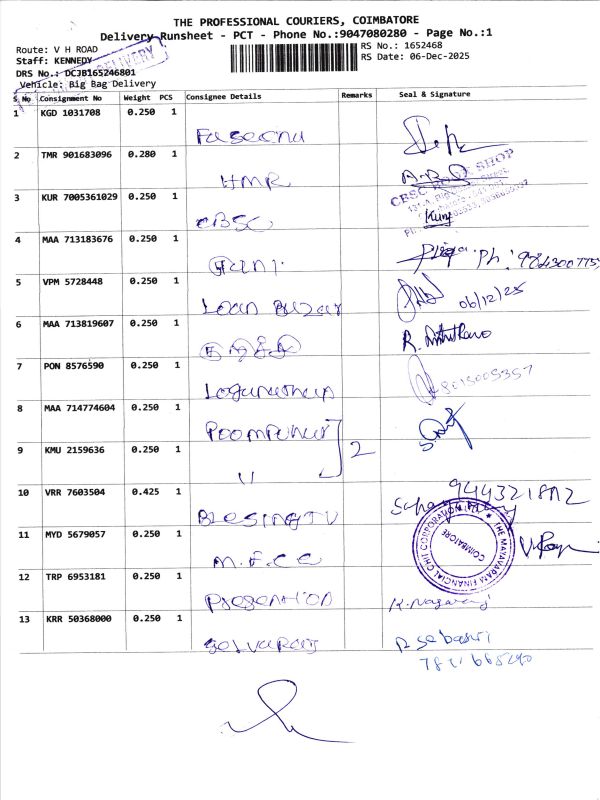 THE PROFESSIONAL COURIERS, COIMBATORE
Delivery Runsheet - PCT - Phone No.:9047080280 - Page No.:1
Route: V H ROAD
RS No.: 1652468
Staff: KENNEDY
RS Date: 06-Dec-2025
DRS No.: DCJB165246801
DELIVERY
Vehicle: Big Bag Delivery
S No Consignment No Weight PCS Consignee Details Remarks Seal & Signature
1 KGD 1031708 0.250 1
2 TMR 901683096 0.280 1 HMR
CBSC BOOK SHOP
3 KUR 7005361029 0.250 1 CBSC
4 MAA 713183676 0.250 1 Ph:
5 VPM 5728448 0.250 1 Loan Bazar 06/12/25
6 MAA 713819607 0.250 1
7 PON 8576590 0.250 1 8015005357
8 MAA 714774604 0.250 1 Poompuhar
9 KMU 2159636 0.250 1 " 2
10 VRR 7603504 0.425 1
THE MAYAVARAM FINANCIAL CHIT CORPORATION LTD
COIMBATORE
11 MYD 5679057 0.250 1 M.F.C.C
12 TRP 6953181 0.250 1 K. Nagaraj
13 KRR 50368000 0.250 1 Selvaraj